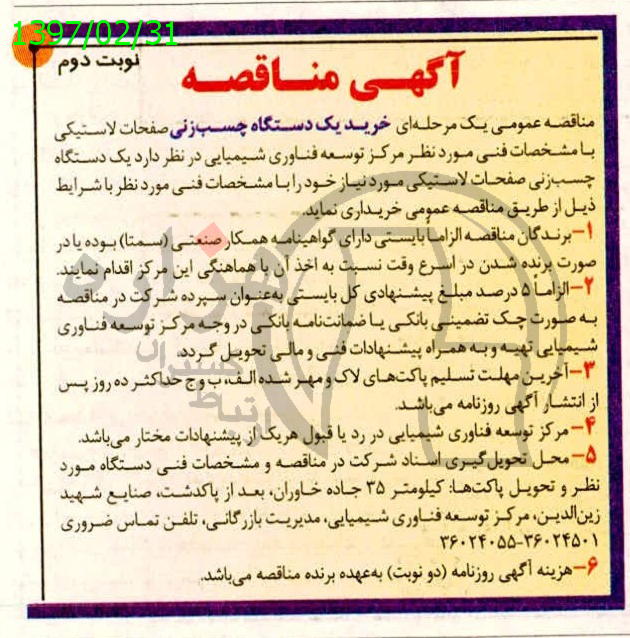 1397/02/31
نوبت دوم
آگهـی منـاقصـه
مناقصه عمومی یک مرحله‌ای خریـد یک دستـگاه چسب‌زنی صفحات لاستیکی
با مشخصات فنی مورد نظر مرکز توسعه فناوری شیمیایی در نظر دارد یک دستگاه
چسب‌زنی صفحات لاستیکی مورد نیاز خود را با مشخصات فنی مورد نظر با شرایط
ذیل از طریق مناقصه عمومی خریداری نماید.
۱-برندگان مناقصه الزاماً بایستی دارای گواهینامه همکار صنعتی (سمتا) بوده یا در
صورت برنده شدن در اسرع وقت نسبت به اخذ آن با هماهنگی این مرکز اقدام نمایند.
۲-الزاماً ۵ درصد مبلغ پیشنهادی کل بایستی به‌عنوان سپرده شرکت در مناقصه
به صورت چک تضمینی بانکی یا ضمانت‌نامه بانکی در وجه مرکز توسعه فناوری
شیمیایی تهیه و به همراه پیشنهادات فنی و مالی تحویل گردد.
۳-آخرین مهلت تسلیم پاکت‌های لاک و مهر شده الف، ب و ج حداکثر ده روز پس
از انتشار آگهی روزنامه می‌باشد.
۴- مرکز توسعه فناوری شیمیایی در رد یا قبول هریک از پیشنهادات مختار می‌باشد.
۵-محل تحویل‌گیری اسناد شرکت در مناقصه و مشخصات فنی دستگاه مورد
نظر و تحویل پاکت‌ها: کیلومتر ۳۵ جاده خاوران، بعد از پاکدشت، صنایع شهید
زین‌الدین، مرکز توسعه فناوری شیمیایی، مدیریت بازرگانی، تلفن تماس ضروری
۳۶۰۲۴۰۵۵-۳۶۰۲۴۵۰۱
۶-هزینه آگهی روزنامه (دو نوبت) به‌عهده برنده مناقصه می‌باشد.
هزاره
ارتباط